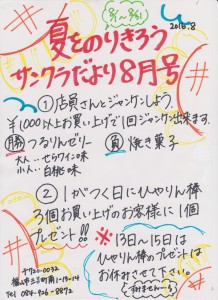 2018.8
8/1～8/31
夏をのりきろう
サンクラだより8月号
①店員さんとジャンケンしよう。
¥1000以上お買い上げで1回ジャンケン出来ます。
勝 つるりんゼリー 負 焼き菓子
大人…せらワイン味
小人…白桃味
②1がつく日にひやりん棒
3個お買い上げのお客様に1個
プレゼント!!
※13日～15日は
ひやりん棒のプレゼントは
お休みさせて下さい。
(すみませーん)
〒720-0032
福山市三吉町南1-13-14
Tel 084-926-8872